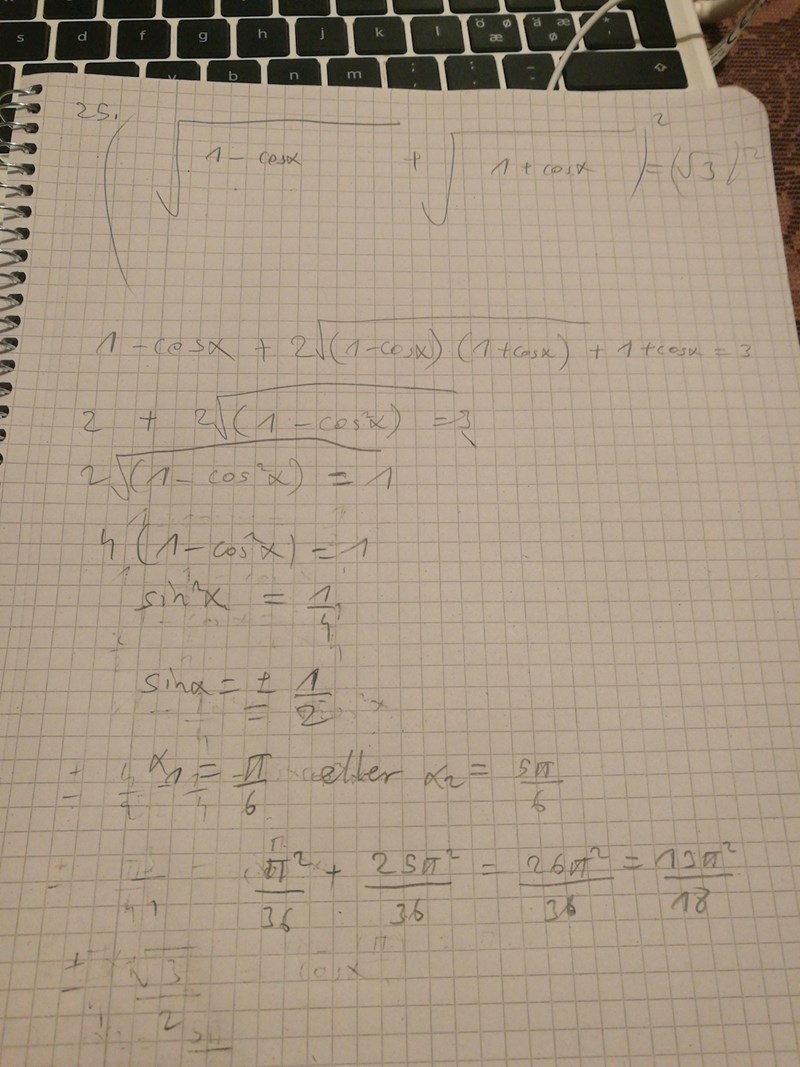 s d f g h j k l Ø Æ Ø Æ Ø * '
v b n m ; , : . _ -
25. (√(1 - cosx) + √(1 + cosx))² = (√3)²
1 - cosx + 2√((1-cosx)(1+cosx)) + 1+cosx = 3
2 + 2√((1 - cos²x)) = 3
2√((1 - cos²x)) = 1
4(1 - cos²x) = 1
sin²x = 1/4
sinx = ± 1/2
x₁ = π/6 eller x₂ = 5π/6
π²/36 + 25π²/36 = 26π²/36 = 13π²/18
± √3/2 cosx